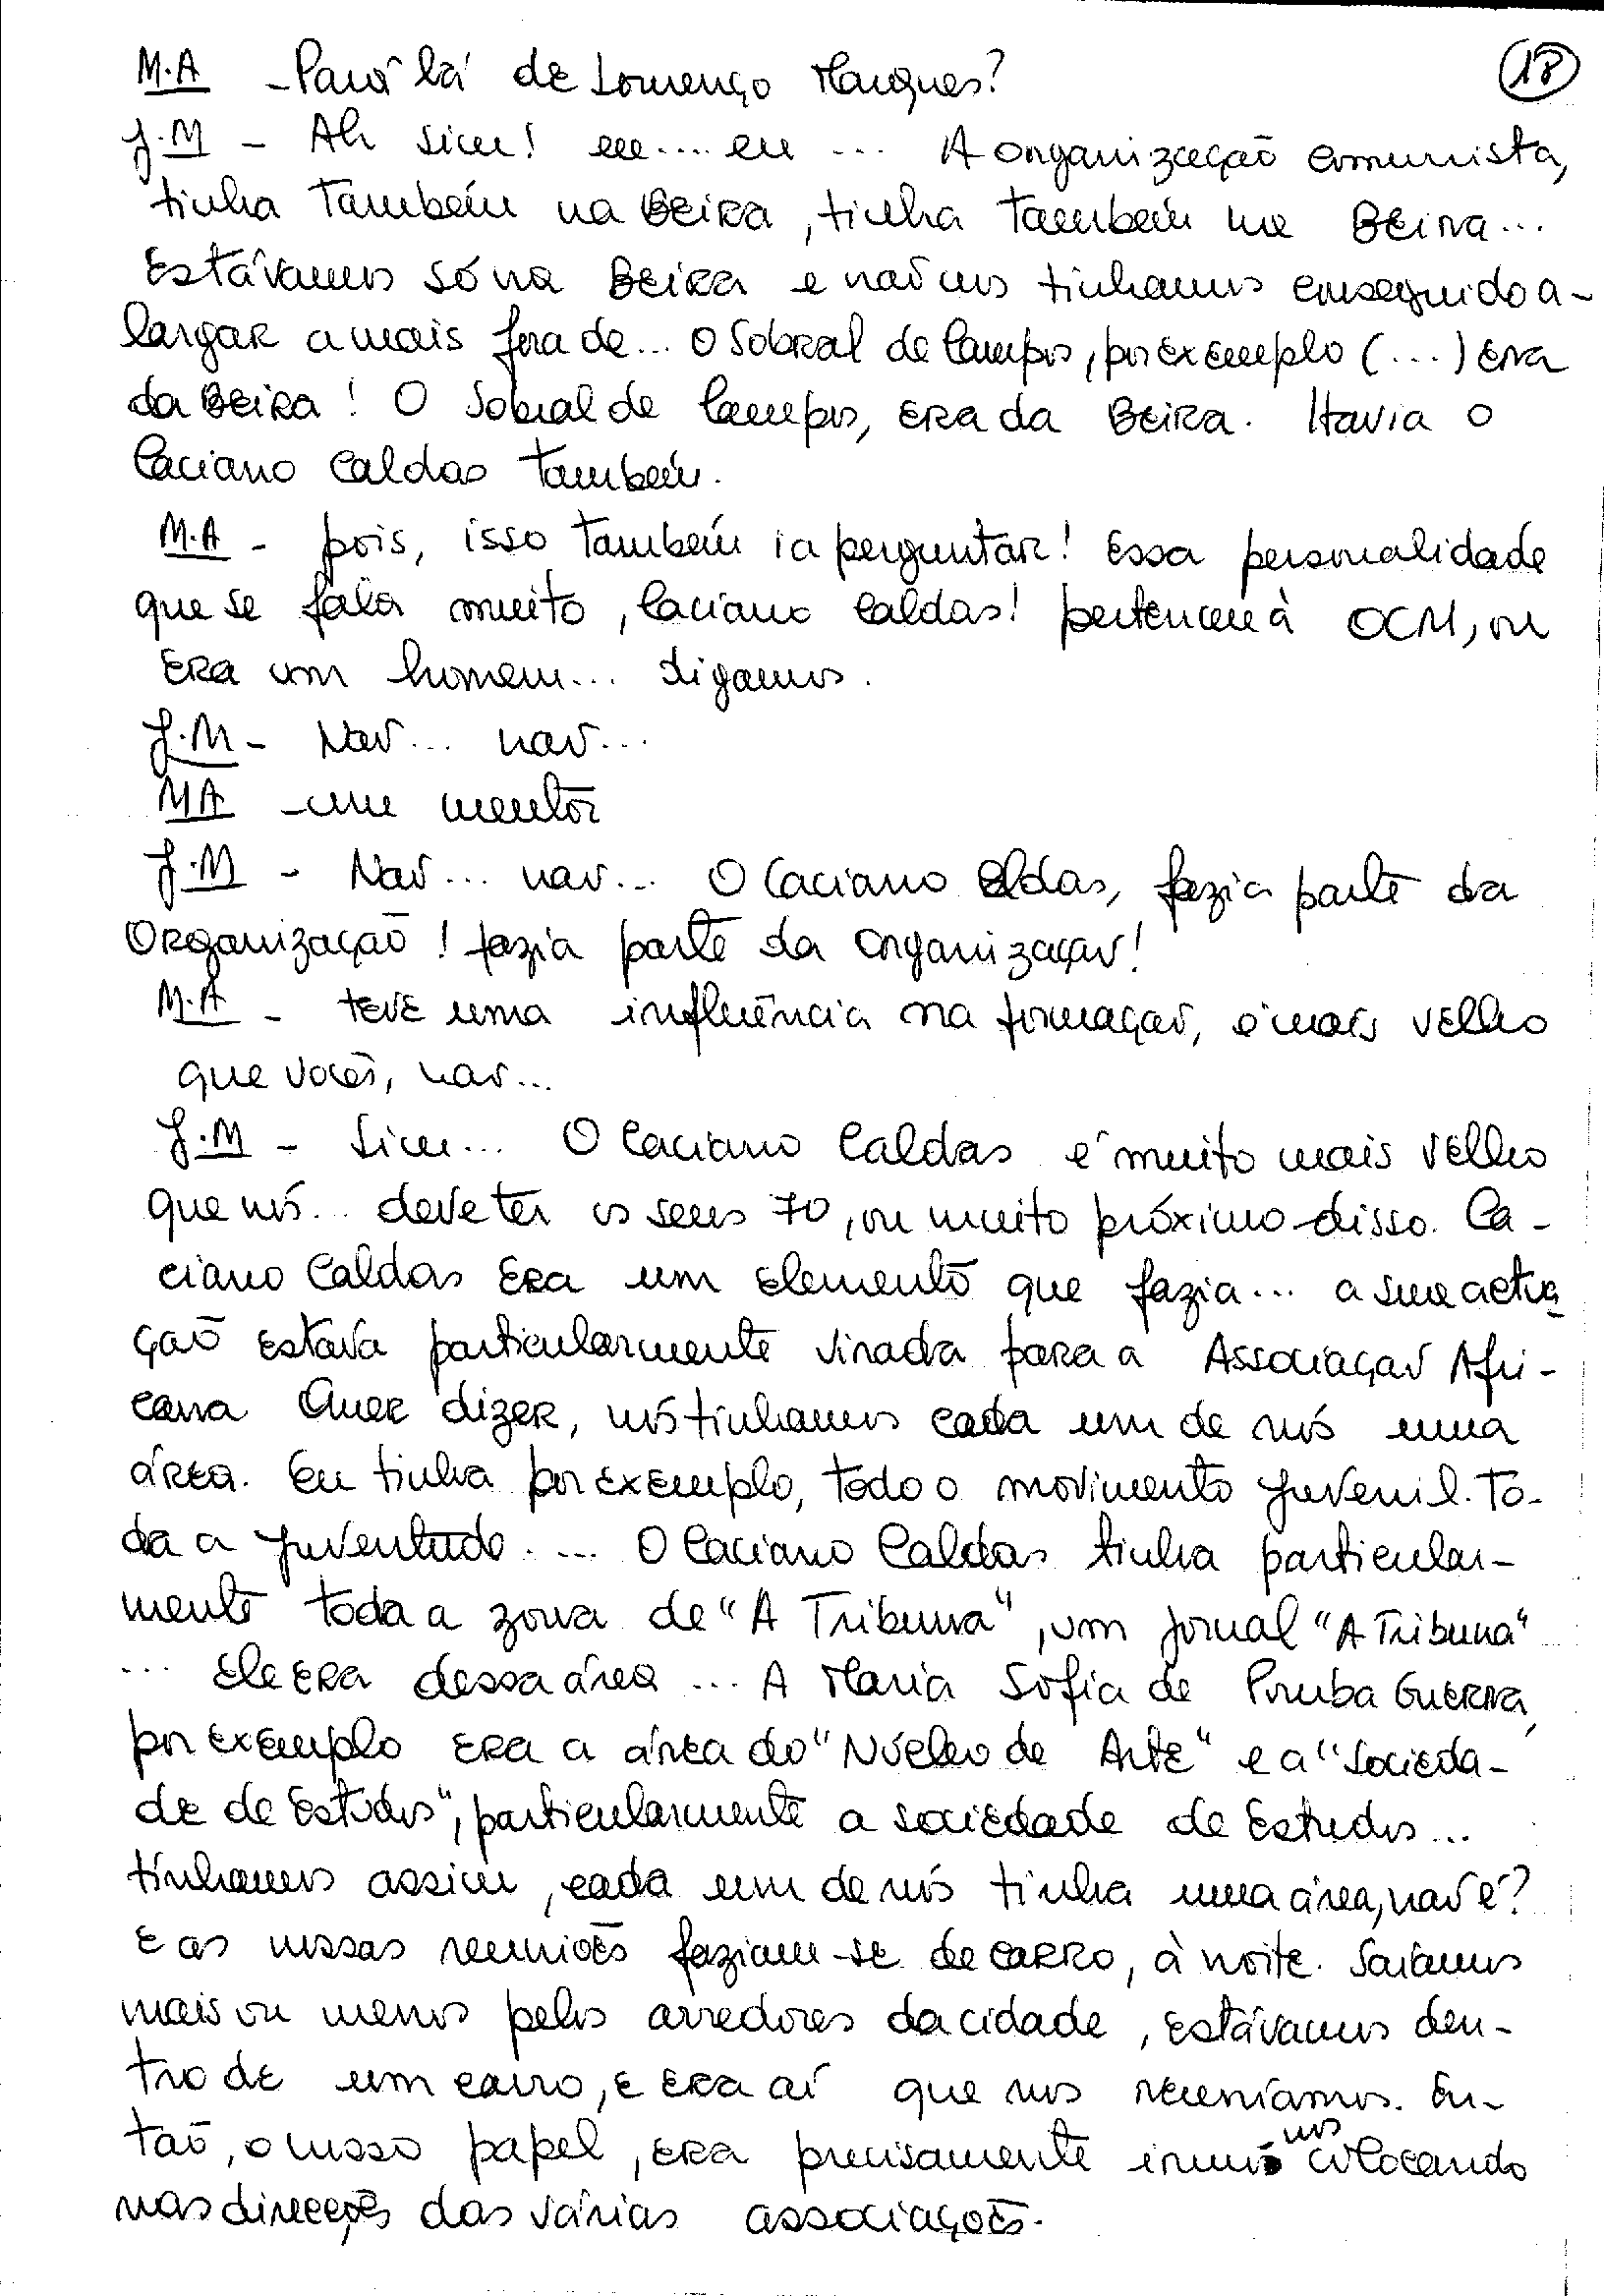 18
M.A - Para lá de Lourenço Marques?
J.M - Ah sim! eu.... eu ... A organização comunista,
tinha também na Beira, tinha também na Beira...
Estávamos só na Beira e não nos tinhamos conseguido a-
largar a mais fora de... O Sobral de Campos, por exemplo (...) era
da Beira! O Sobral de Campos, era da Beira. Havia o
Caciano Caldas também.
M.A - pois, isso também ia perguntar! Essa personalidade
que se fala muito, Caciano Caldas! pertenceu à OCM, ou
era um homem... digamos.
J.M - Não... não...
MA - um mentor
J.M - Não... não... O Caciano Caldas, fazia parte da
Organização! fazia parte da organização!
M.A - teve uma influência na formação, é mais velho
que vocês, não...
J.M - Sim... O Caciano Caldas é muito mais velho
que nós... deve ter os seus 70, ou muito próximo disso. Ca-
ciano Caldas era um elemento que fazia... a sua actua
ção estava particularmente virada para a Associação Afri-
cana Quer dizer, nós tinhamos cada um de nós uma
área. Eu tinha por exemplo, todo o movimento juvenil. To-
da a juventude.... O Caciano Caldas tinha particular-
mente toda a zona de "A Tribuna", um jornal "A Tribuna"
... Ele era dessa área... A Maria Sofia de Pomba Guerra,
por exemplo era a área do "Núcleo de Arte" e a "Socieda-
de de Estudos", particularmente a sociedade de Estudos...
tínhamos assim, cada um de nós tinha uma área, não é?
E as nossas reuniões faziam-se de carro, à noite. Saíamos
mais ou menos pelos arredores da cidade, estávamos den-
tro de um carro, e era aí que nos reuníamos. En-
tão, o nosso papel, era precisamente irmos nos colocando
nas direcções das várias associações.